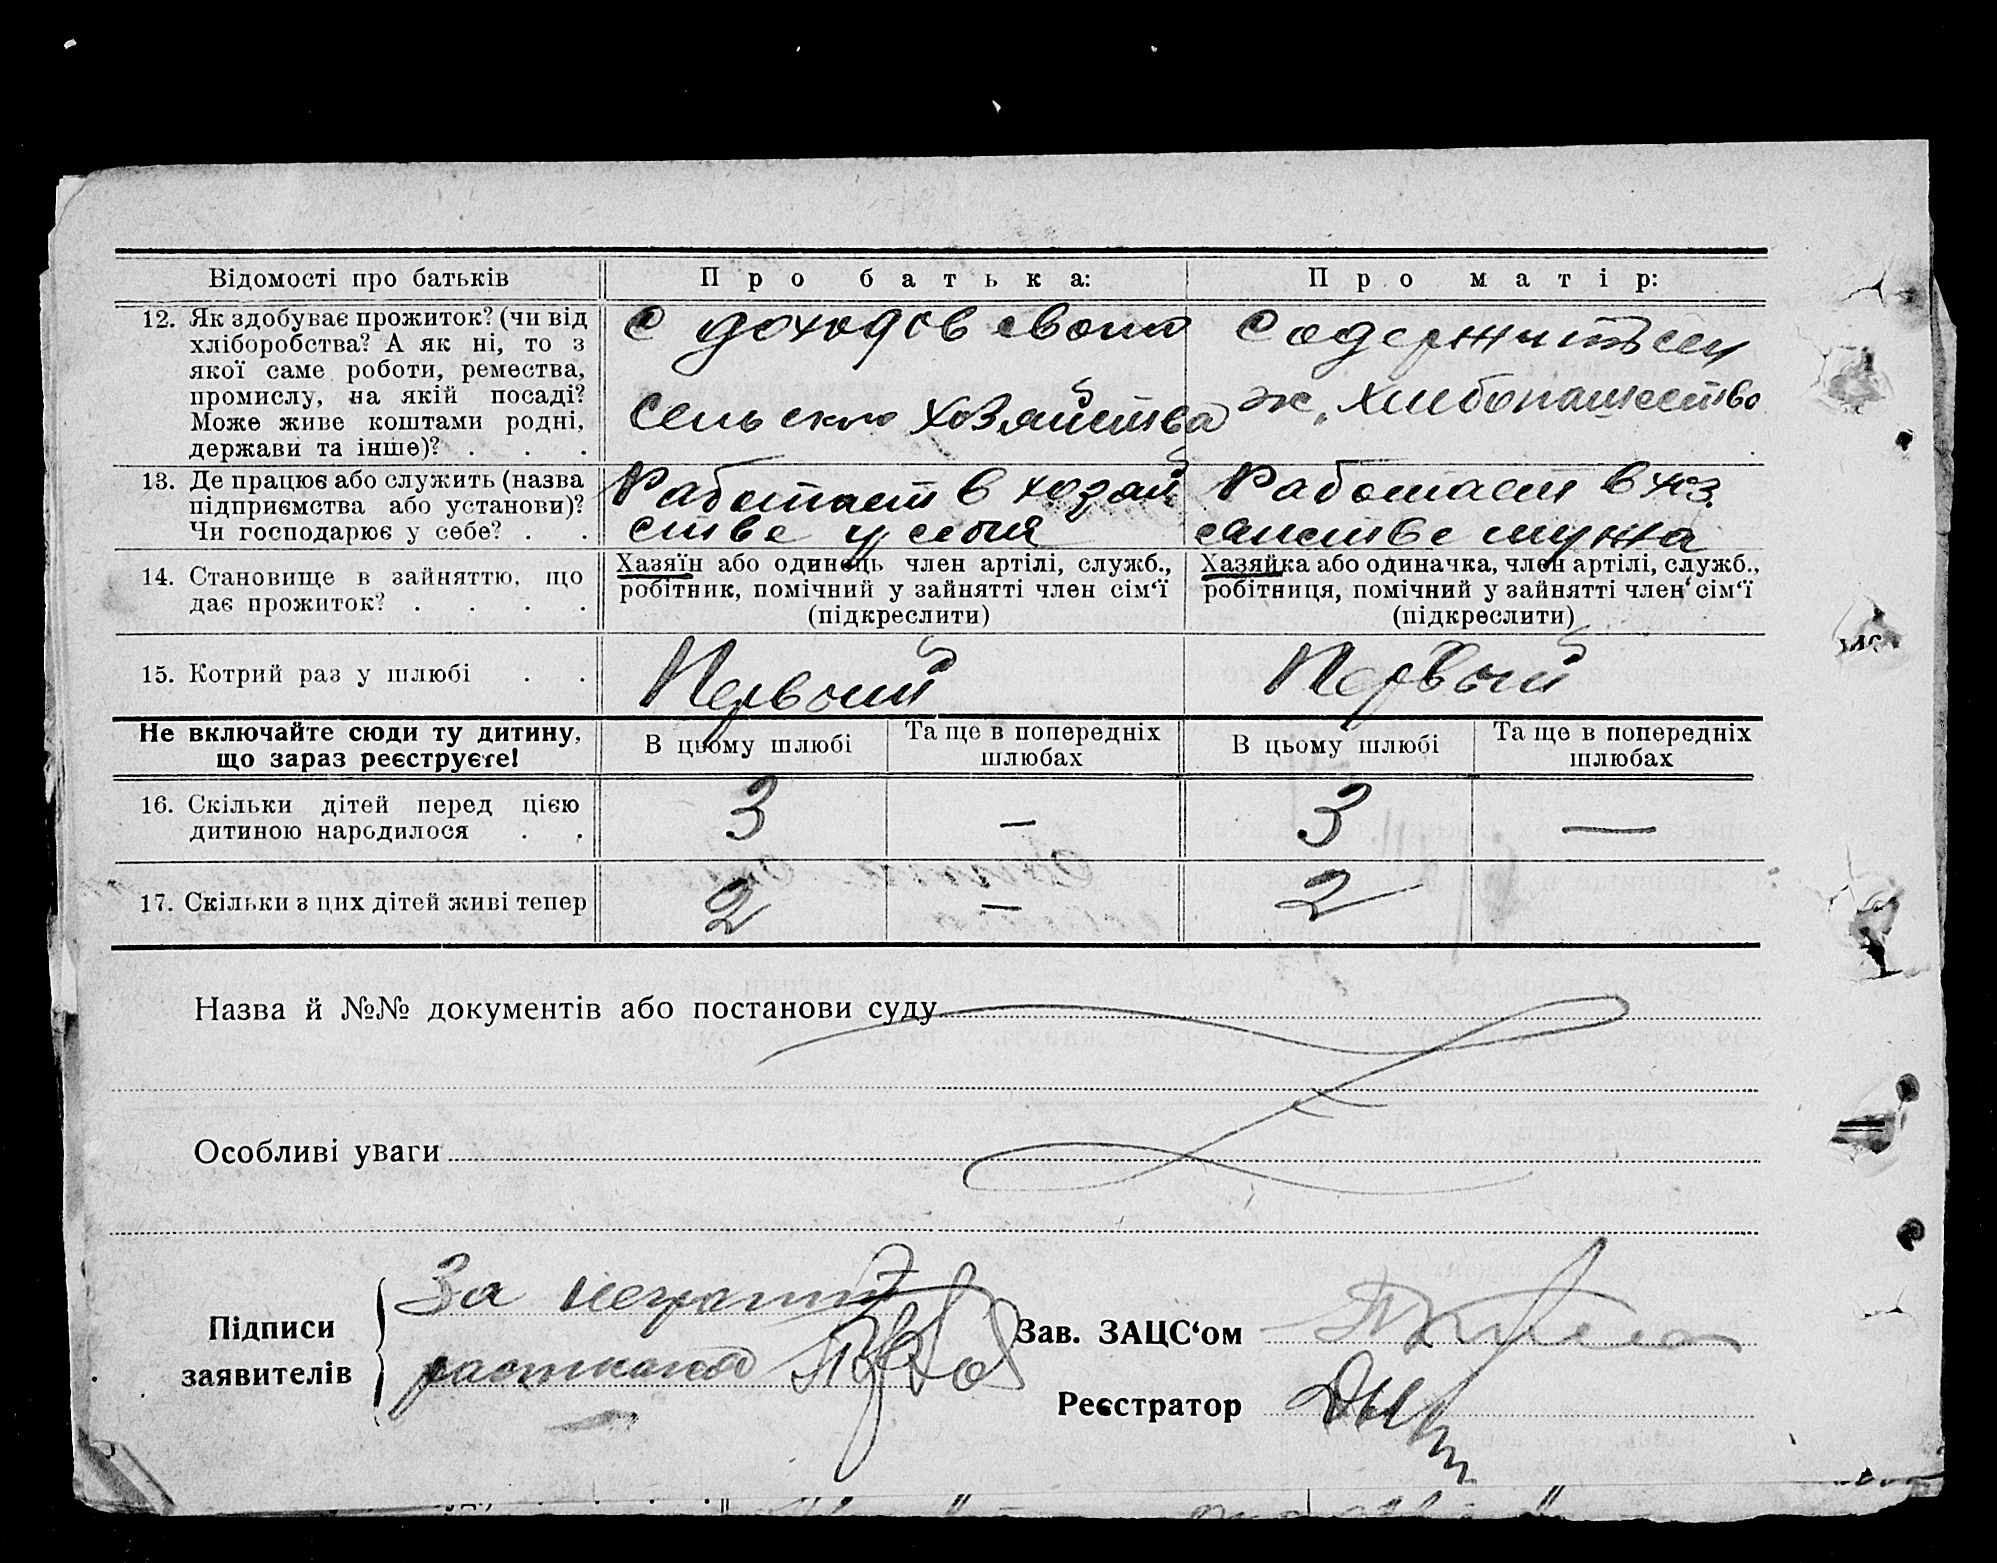 Відомості про батьків
Про батька:
Про матір:
12. Як здобуває прожиток? (чи від
хліборобства? А як ні, то з
якої саме роботи, ремества,
промислу, на якій посаді?
Може живе коштами родні,
держави та інше)? . . .
С доходов своего
сельского хозяйства
Содержится
ж. хлебопашество
13. Де працює або служить (назва
підприємства або установи)?
Чи господарює у себе? . .
Работает в хозяй
стве у себя
Работает в хоз
мужа
14. Становище в зайняттю, що
дає прожиток? . . . .
Хазяїн або одинець член артілі, служб.,
робітник, помічний у зайнятті член сім‘ї
(підкреслити)
Хазяйка або одиначка, член артілі, служб.,
робітниця, помічний у зайнятті член сім‘ї
(підкреслити)
15. Котрий раз у шлюбі . .
Первый
Первый
Не включайте сюди ту дитину,
що зараз реєструєте!
В цьому шлюбі
Та ще в попередніх
шлюбах
В цьому шлюбі
Та ще в попередніх
шлюбах
16. Скільки дітей перед цією
дитиною народилося . .
3
—
3
—
17. Скільки з цих дітей живі тепер
2
—
2
Назва й №№ документів або постанови суду
Особливі уваги
Підписи
заявителів
За неграмот
расписался
Зав. ЗАЦС‘ом
Реєстратор